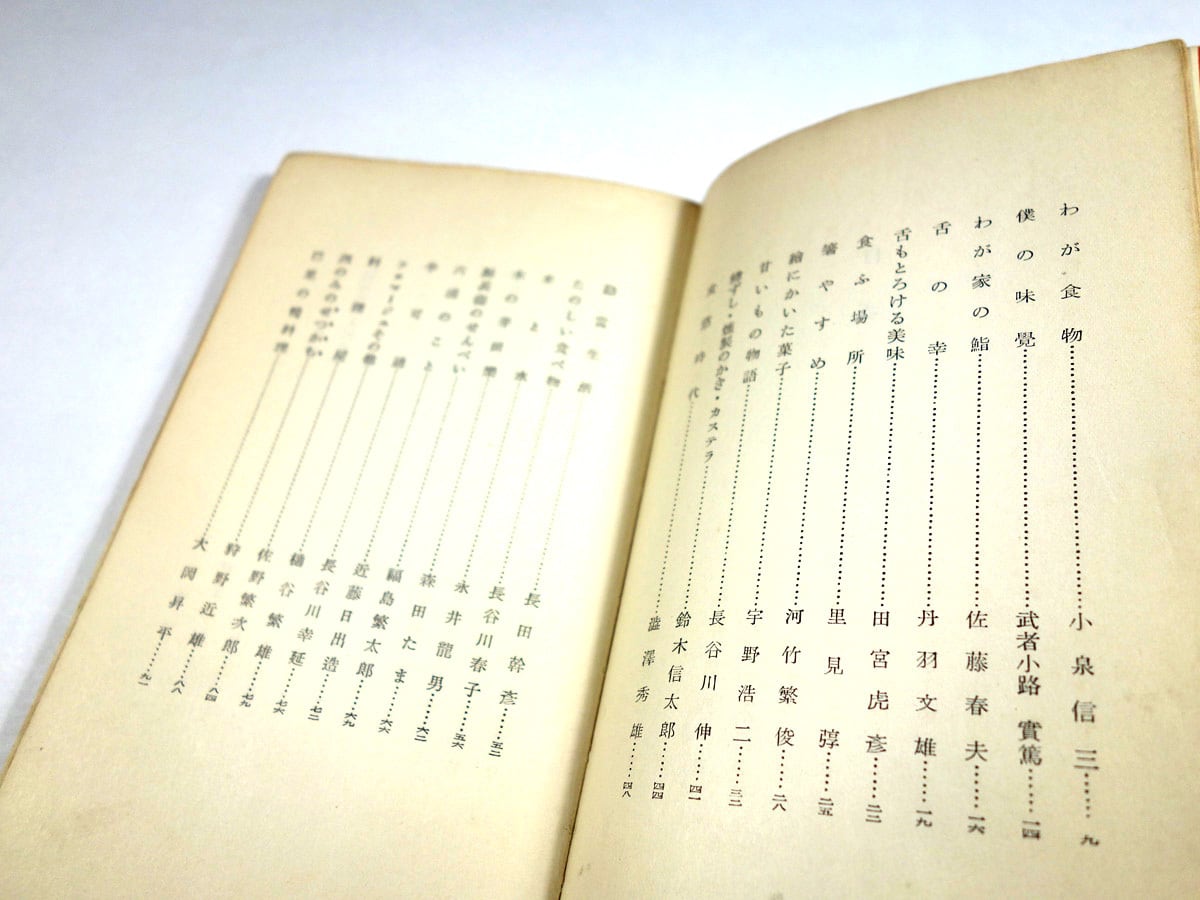 わが食物……小泉信三……九
僕の味覺……武者小路 實篤……一四
わが家の鮨……佐藤春夫……一六
舌の幸……丹羽文雄……一九
舌もとろける美味……田宮虎彦……二二
食ふ場所……里見弴……二五
箸やすめ……河竹繁俊……二八
繪にかいた菓子……宇野浩二……三二
甘いもの物語……長谷川伸……四一
ずし・燻製のかき・カステラ……鈴木信太郎……四四
時代……澁澤秀雄……四八
生活……長田幹彦……五二
たのしい食べ物……長谷川春子……五六
と水……永井龍男……六二
木の芽田樂……森田たま……六六
のせんべい……福島繁太郎……六九
のこと……近藤日出造……七二
長谷川幸延……七六
その他……樋谷繁雄……七九
料理……佐野繁次郎……八四
狩野近雄……八八
巴里の鴨料理……大岡昇平……九一